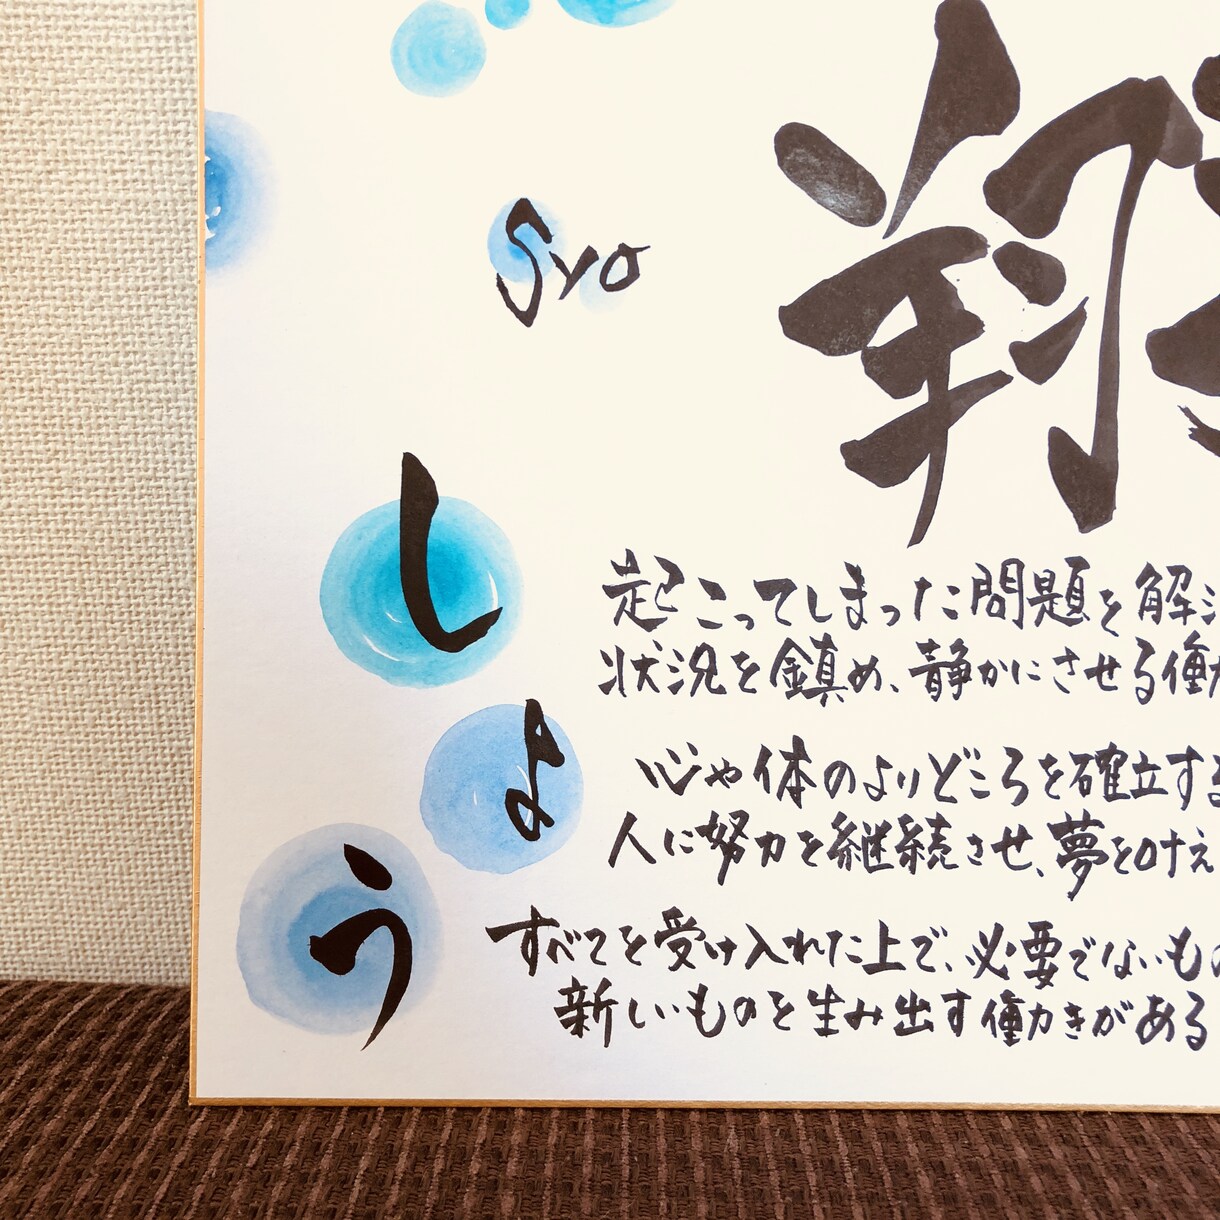 翔
Syo
しょう
起こってしまった問題を解決
状況を鎮め、静かにさせる働
心や体のよりどころを確立する
人に努力を継続させ、夢を叶え
すべてを受け入れた上で、必要でないもの
新しいものを生み出す働きがある